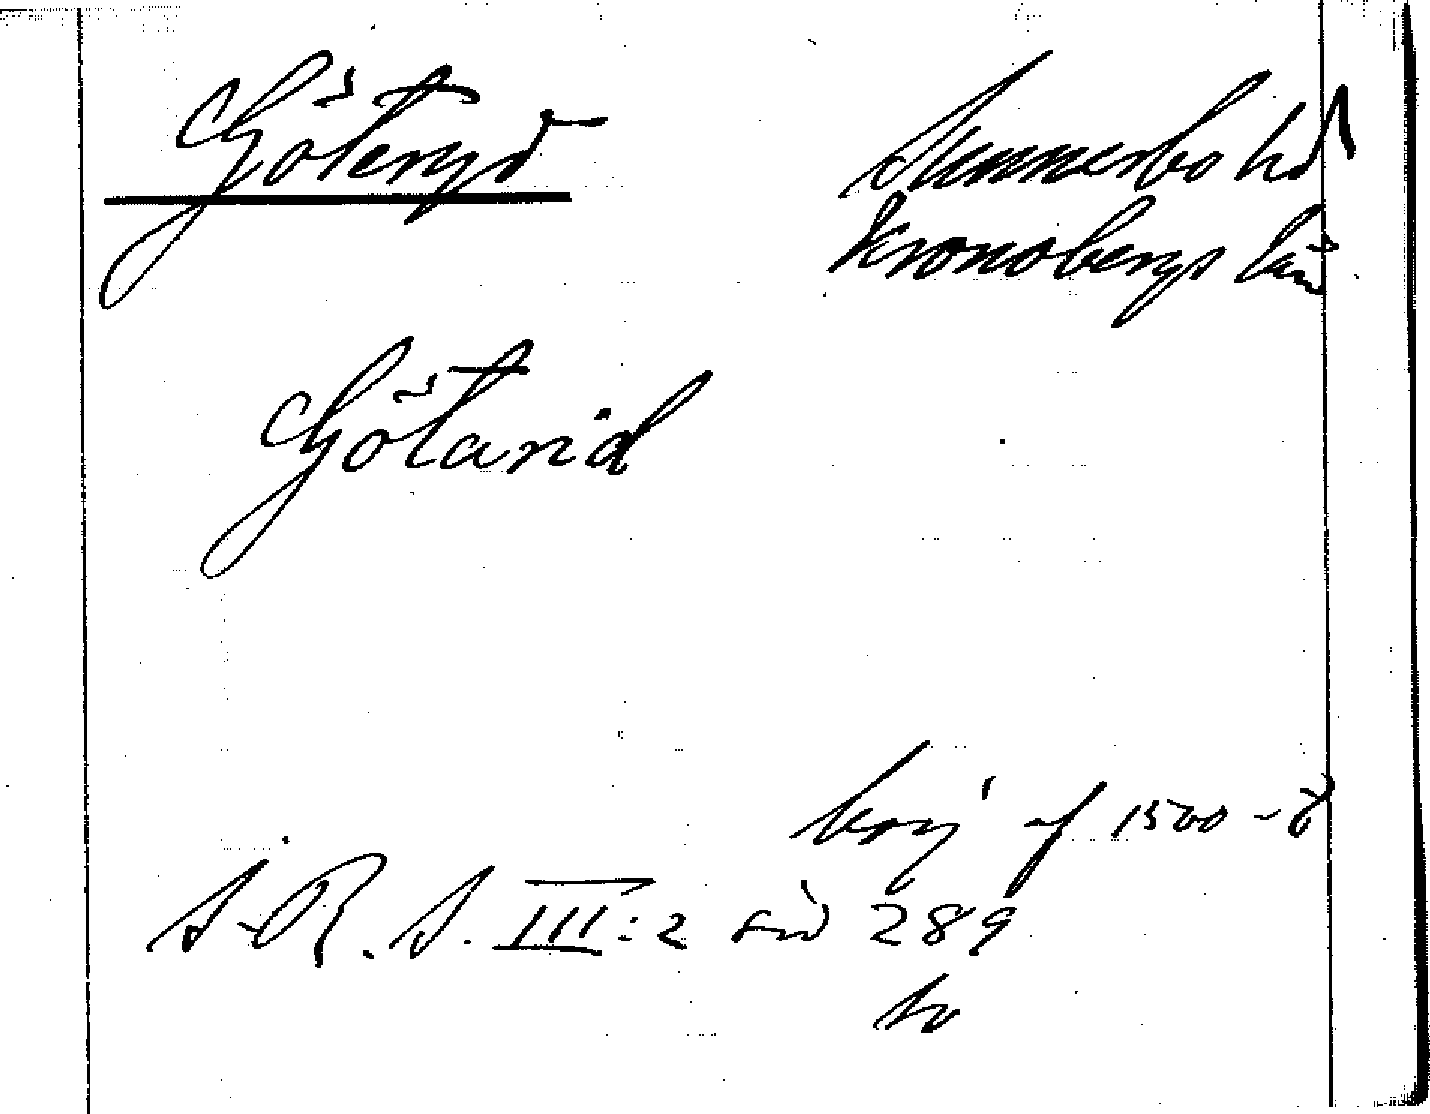 Göteryd
Sunnerbo hd
Kronobergs län
Götarid
börj af 1500-t
S.R.S. III:2 sid 289